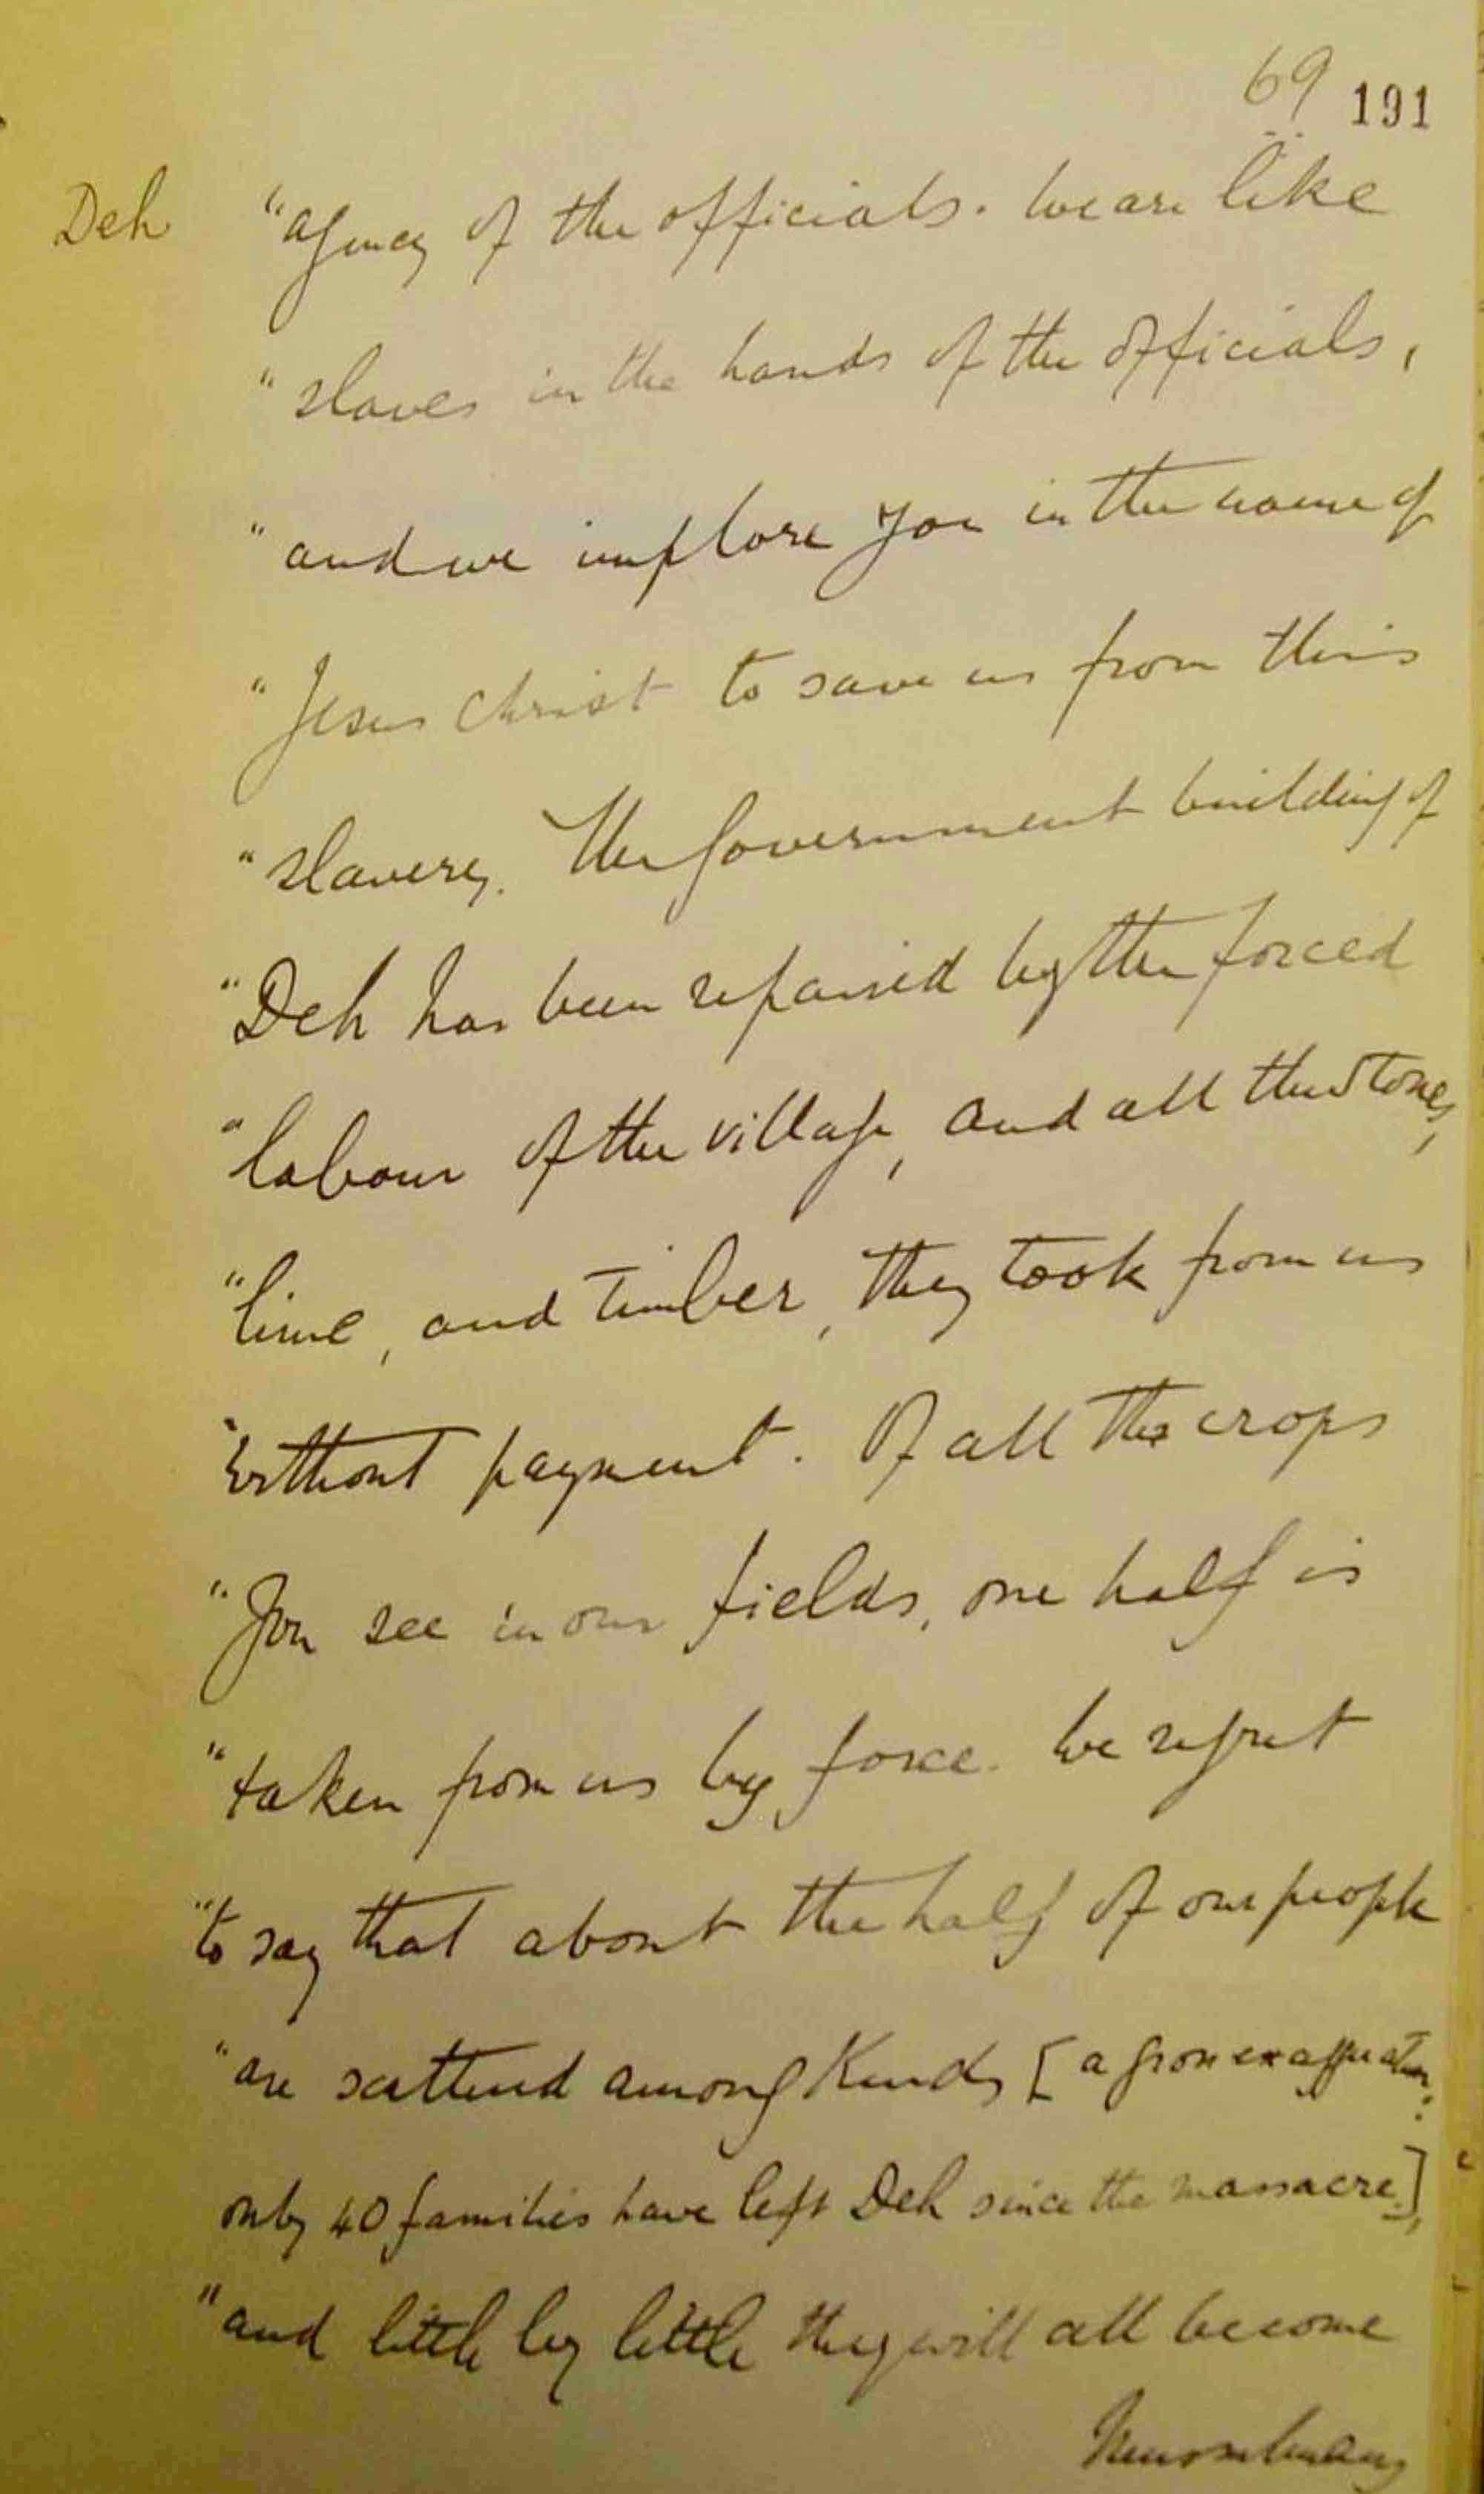 69 191
Deh "agency of the officials. We are like
"slaves in the hands of the officials,
"and we implore you in the name of
"Jesus Christ to save us from this
"slavery. The Government building of
"Deh has been repaired by the forced
"labour of the village, and all the stones,
"lime, and timber, they took from us
"without payment. Of all the crops
"you see in our fields, one half is
"taken from us by force. We regret
"to say that about the half of our people
"are scattered among Kurds [a gross exaggeration:
only 40 families have left Deh since the massacre],
"and little by little they will all become
Mussulmans